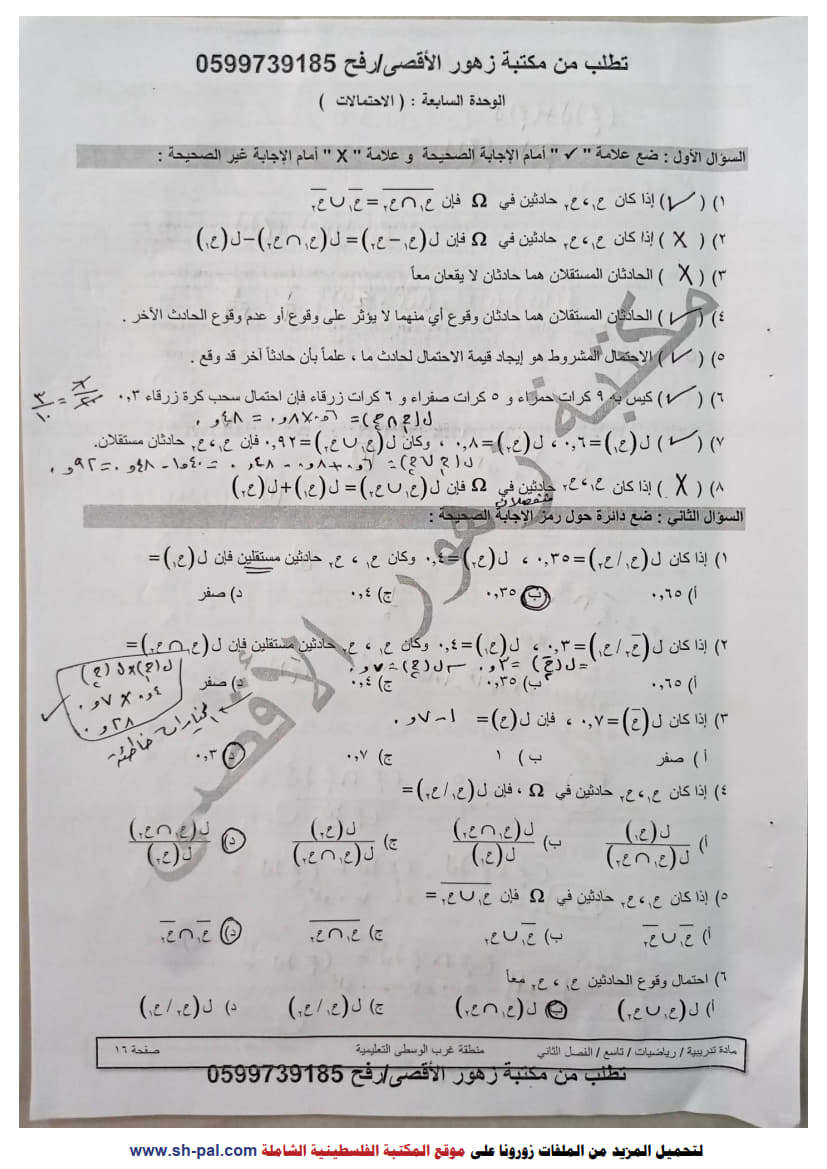 تطلب من مكتبة زهور الأقصى/رفح 0599739185
الوحدة السابعة : ( الاحتمالات )
السؤال الأول : ضع علامة " ✓ " أمام الإجابة الصحيحة و علامة " X " أمام الإجابة غير الصحيحة :
١) ( ✓ ) إذا كان ح١ ، ح٢ حادثين في Ω فإن \overline{ح١ ∩ ح٢} = \overline{ح١} ∪ \overline{ح٢}
٢) ( X ) إذا كان ح١ ، ح٢ حادثين في Ω فإن ل(ح١ – ح٢) = ل(ح١ ∩ ح٢) – ل(ح١)
٣) ( X ) الحادثان المستقلان هما حادثان لا يقعان معاً
٤) ( ✓ ) الحادثان المستقلان هما حادثان وقوع أي منهما لا يؤثر على وقوع أو عدم وقوع الحادث الآخر .
٥) ( ✓ ) الاحتمال المشروط هو إيجاد قيمة الاحتمال لحادث ما ، علماً بأن حادثاً آخر قد وقع .
٦) ( ✓ ) كيس به ٩ كرات حمراء و ٥ كرات صفراء و ٦ كرات زرقاء فإن احتمال سحب كرة زرقاء ٠,٣
= ٣/١٠
ل(ح١ ∩ ح٢) = ٠,٦ × ٠,٨ = ٠,٤٨
٧) ( ✓ ) ل(ح١) = ٠,٦ ، ل(ح٢) = ٠,٨ ، وكان ل(ح١ ∪ ح٢) = ٠,٩٢ فإن ح١ ، ح٢ حادثان مستقلان.
ل(ح١ ∪ ح٢) = ٠,٦ + ٠,٨ - ٠,٤٨ = ١,٤٠ - ٠,٤٨ = ٠,٩٢
٨) ( X ) إذا كان ح١ ، ح٢ حادثين في Ω فإن ل(ح١ ∪ ح٢) = ل(ح١) + ل(ح٢)
منفصلان
السؤال الثاني : ضع دائرة حول رمز الإجابة الصحيحة :
١) إذا كان ل(ح١ / ح٢) = ٠,٣٥ ، ل(ح٢) = ٠,٤ وكان ح١ ، ح٢ حادثين مستقلين فإن ل(ح١) =
أ) ٠,٦٥ ب) ٠,٣٥ ج) ٠,٤ د) صفر
٢) إذا كان ل(\overline{ح٢} / ح١) = ٠,٣ ، ل(ح١) = ٠,٤ وكان ح١ ، ح٢ حادثين مستقلين فإن ل(ح١ ∩ ح٢) =
= ل(\overline{ح٢}) = ٠,٣ ← ل(ح٢) = ٠,٧
أ) ٠,٦٥ ب) ٠,٣٥ ج) ٠,٤ د) صفر
ل(ح١) × ل(ح٢)
٠,٤ × ٠,٧
٠,٢٨
✓
خاطئة
٣) إذا كان ل(\overline{ح}) = ٠,٧ ، فإن ل(ح) = ١ - ٠,٧
أ) صفر ب) ١ ج) ٠,٧ د) ٠,٣
٤) إذا كان ح١ ، ح٢ حادثين في Ω ، فإن ل(ح١ / ح٢) =
أ) ل(ح١) / ل(ح١ ∩ ح٢) ب) ل(ح١ ∩ ح٢) / ل(ح١) ج) ل(ح٢) / ل(ح١ ∩ ح٢) د) ل(ح١ ∩ ح٢) / ل(ح٢)
٥) إذا كان ح١ ، ح٢ حادثين في Ω فإن \overline{ح١ ∪ ح٢} =
أ) \overline{ح١} ∪ \overline{ح٢} ب) \overline{ح١} ∪ ح٢ ج) \overline{ح١ ∩ ح٢} د) \overline{ح١} ∩ \overline{ح٢}
٦) احتمال وقوع الحادثين ح١ ، ح٢ معاً
أ) ل(ح١ ∪ ح٢) ب) ل(ح١ ∩ ح٢) ج) ل(ح١ / ح٢) د) ل(ح٢ / ح١)
مكتبة زهور الأقصى
مادة تدريبية / رياضيات / تاسع / الفصل الثاني منطقة غرب الوسطى التعليمية صفحة ١٦
تطلب من مكتبة زهور الأقصى/رفح 0599739185
لتحميل المزيد من الملفات زورونا على موقع المكتبة الفلسطينية الشاملة www.sh-pal.com